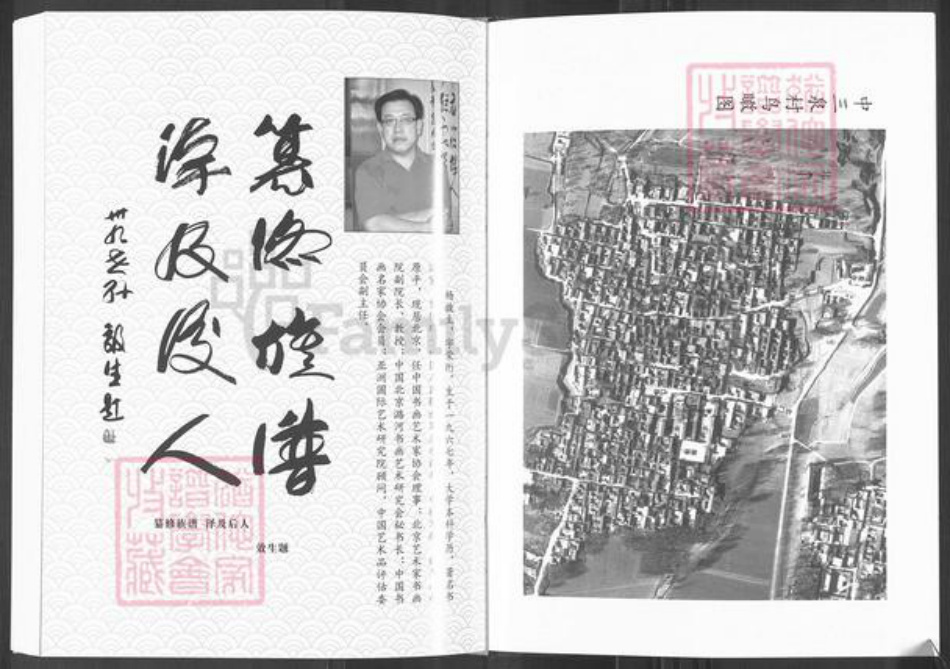 纂修族譜
澤及後人
效生题
生于一九六七年，大学本科学历，著名书
原平，现居北京，任中国书画艺术家协会理事；北京艺术家书画
院副院长、教授；中国北京潞河书画艺术研究会秘书长；中国书
画名家协会会员；亚洲国际艺术研究院顾问，中国艺术品评估委
员会副主任。
纂修族谱 泽及后人
效生题
中三泉村鸟瞰图